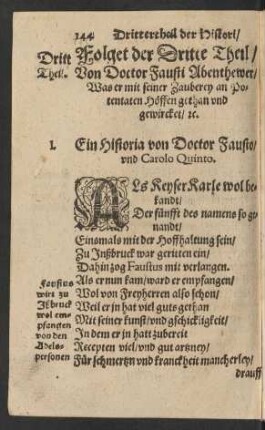 144 Dritter theil der Histori/
Dritt Theil.
Folget der Dritte Theil/
Von Doctor Fausti Abenthewer/
Was er mit seiner Zauberey an Po-
tentaten Höffen gethan vnd
gewircket/ ꝛc.
1. Ein Historia von Doctor Fausto/
vnd Carolo Quinto.
ALs Keyser Karle wol be-
kandt/
Der fünfft des namens so ge-
nandt/
Einsmals mit der Hoffhaltung sein/
Zu Inßbruck war geritten ein/
Dahin zog Faustus mit verlangen.
Als er nun kam/ ward er empfangen/
Wol von Freyherren also schon/
Weil er in hat viel guts gethan
Mit seiner kunst/ vnd gschickligkeit/
In dem er in hatt zubereit
Recepten viel/ vnd gut artzney/
Für schmertzn vnd kranckheit mancherley/
drauff
Faustus
wirt zu
Jßbruck
wol em-
pfangen
von den
Adels-
personen